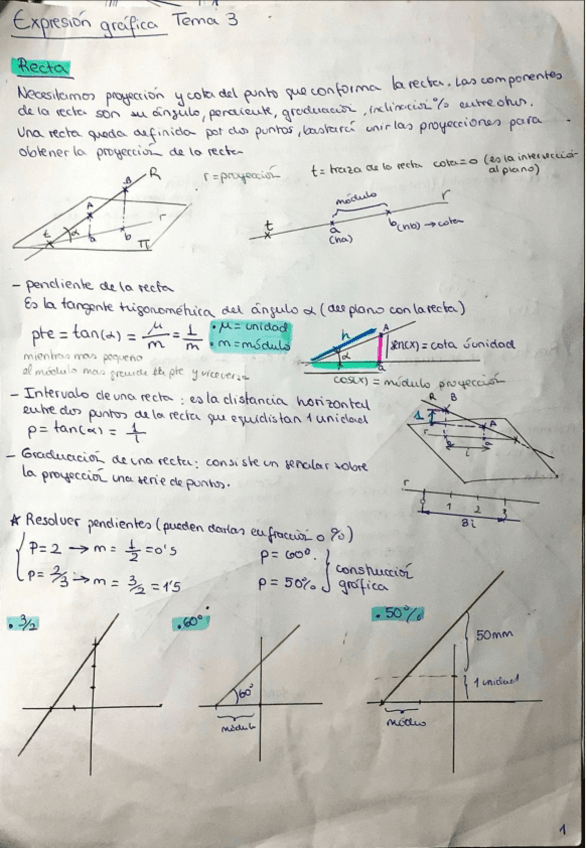 Expresión gráfica Tema 3
Recta
Necesitamos proyección y cota del punto que conforma la recta. Las componentes
de la recta son su ángulo, pendiente, graduación, inclinación % entre otras.
Una recta queda definida por dos puntos, bastará unir las proyecciones para
obtener la proyección de la recta
r = proyección t = traza de la recta cota=0 (es la intersección
al plano)
R
B
A
r
t α a b
π
módulo r
t a b (nb) → cota
(na)
- pendiente de la recta
Es la tangente trigonométrica del ángulo α (del plano con la recta)
pte = tan(α) = μ/m = 1/m
• μ = unidad
• m = módulo
mientras mas pequeño
el módulo mas grande la pte y viceversa
h A
α a
sen(x) = cota ó unidad
cos(x) = módulo proyección
- Intervalo de una recta: es la distancia horizontal
entre dos puntos de la recta que equidistan 1 unidad
p = tan(α) = 1/i
R B
1 A
r
i
- Graduación de una recta: consiste en señalar sobre
la proyección una serie de puntos.
r
0 1 2 3
3i
★ Resolver pendientes (pueden darlas en fracción o %)
P = 2 → m = 1/2 = 0'5
p = 2/3 → m = 3/2 = 1'5
p = 60º
p = 50%
construcción
gráfica
• 3/2
• 60º
60º
módulo
• 50%
50mm
1 unidad
módulo
1